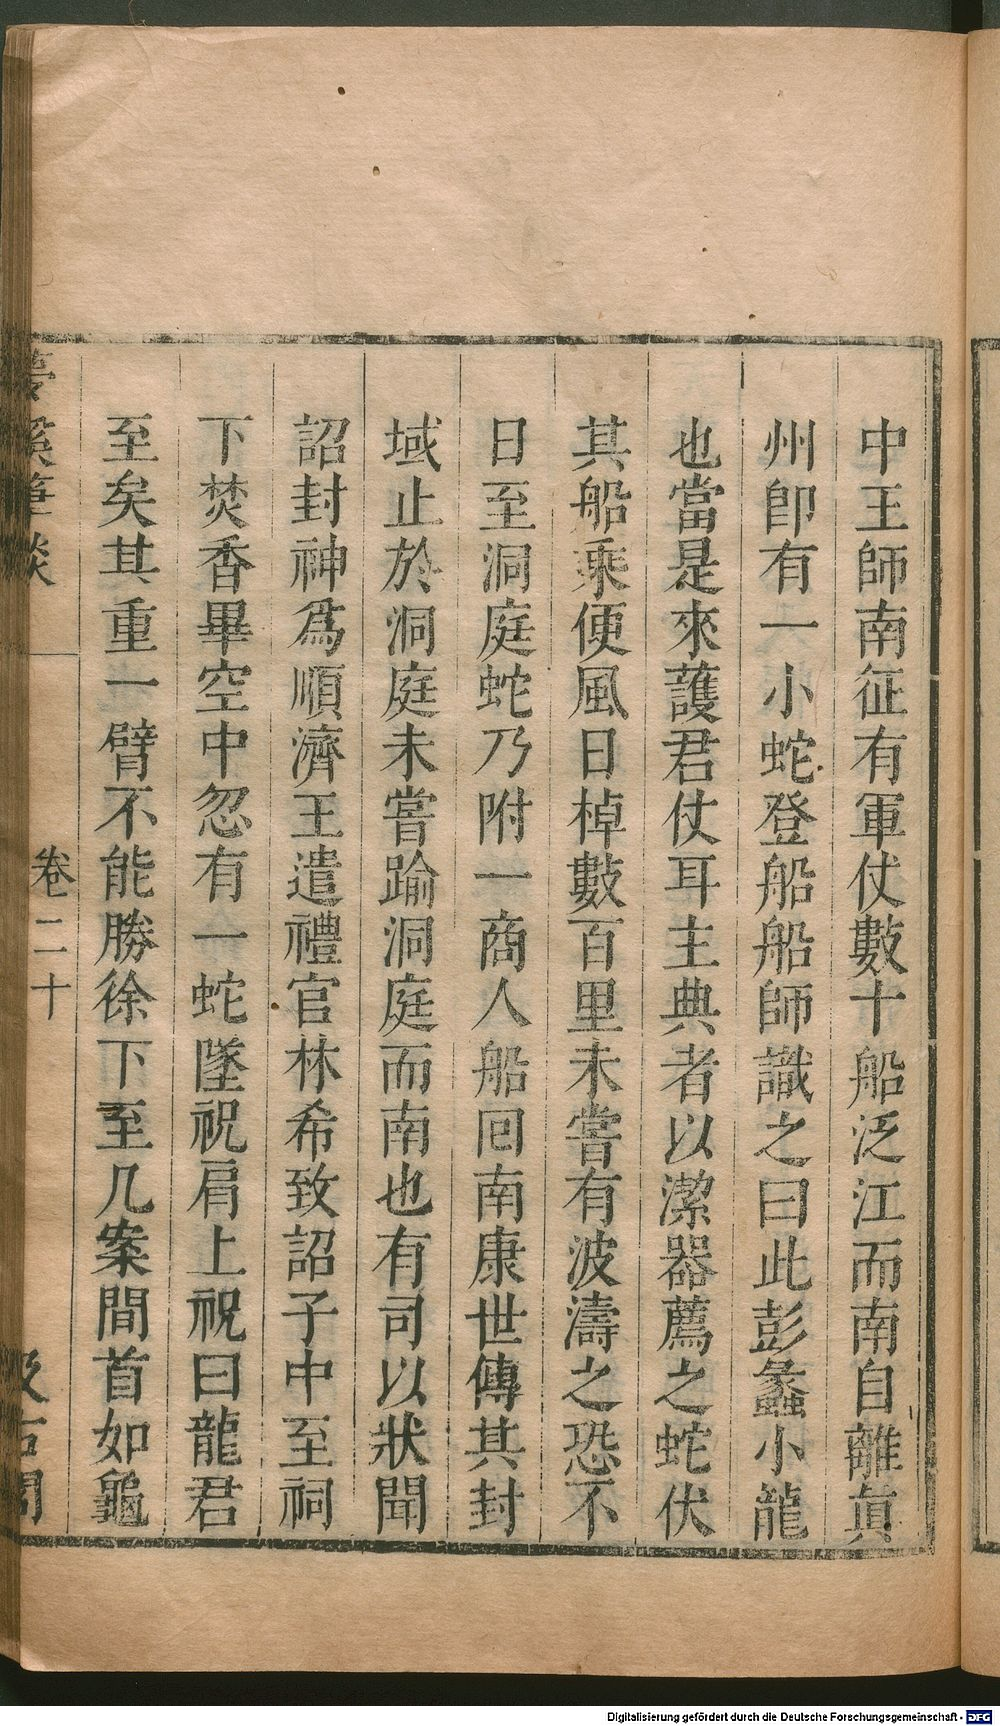 中王師南征有軍仗數十船泛江而南自離真
州卽有一小蛇登船船師識之曰此彭蠡小龍
也當是來護君仗耳主典者以潔器薦之蛇伏
其船乗便風日棹數百里未嘗有波濤之恐不
日至洞庭蛇乃附一商人船囘南康世傳其封
域止於洞庭未嘗踰洞庭而南也有司以狀聞
詔封神爲順濟王遣禮官林希致詔子中至祠
下焚香畢空中忽有一蛇墜祝肩上祝曰龍君
至矣其重一臂不能勝徐下至几案間首如龜
夢溪筆談 卷二十 汲古閣
Digitalisierung gefördert durch die Deutsche Forschungsgemeinschaft - DFG